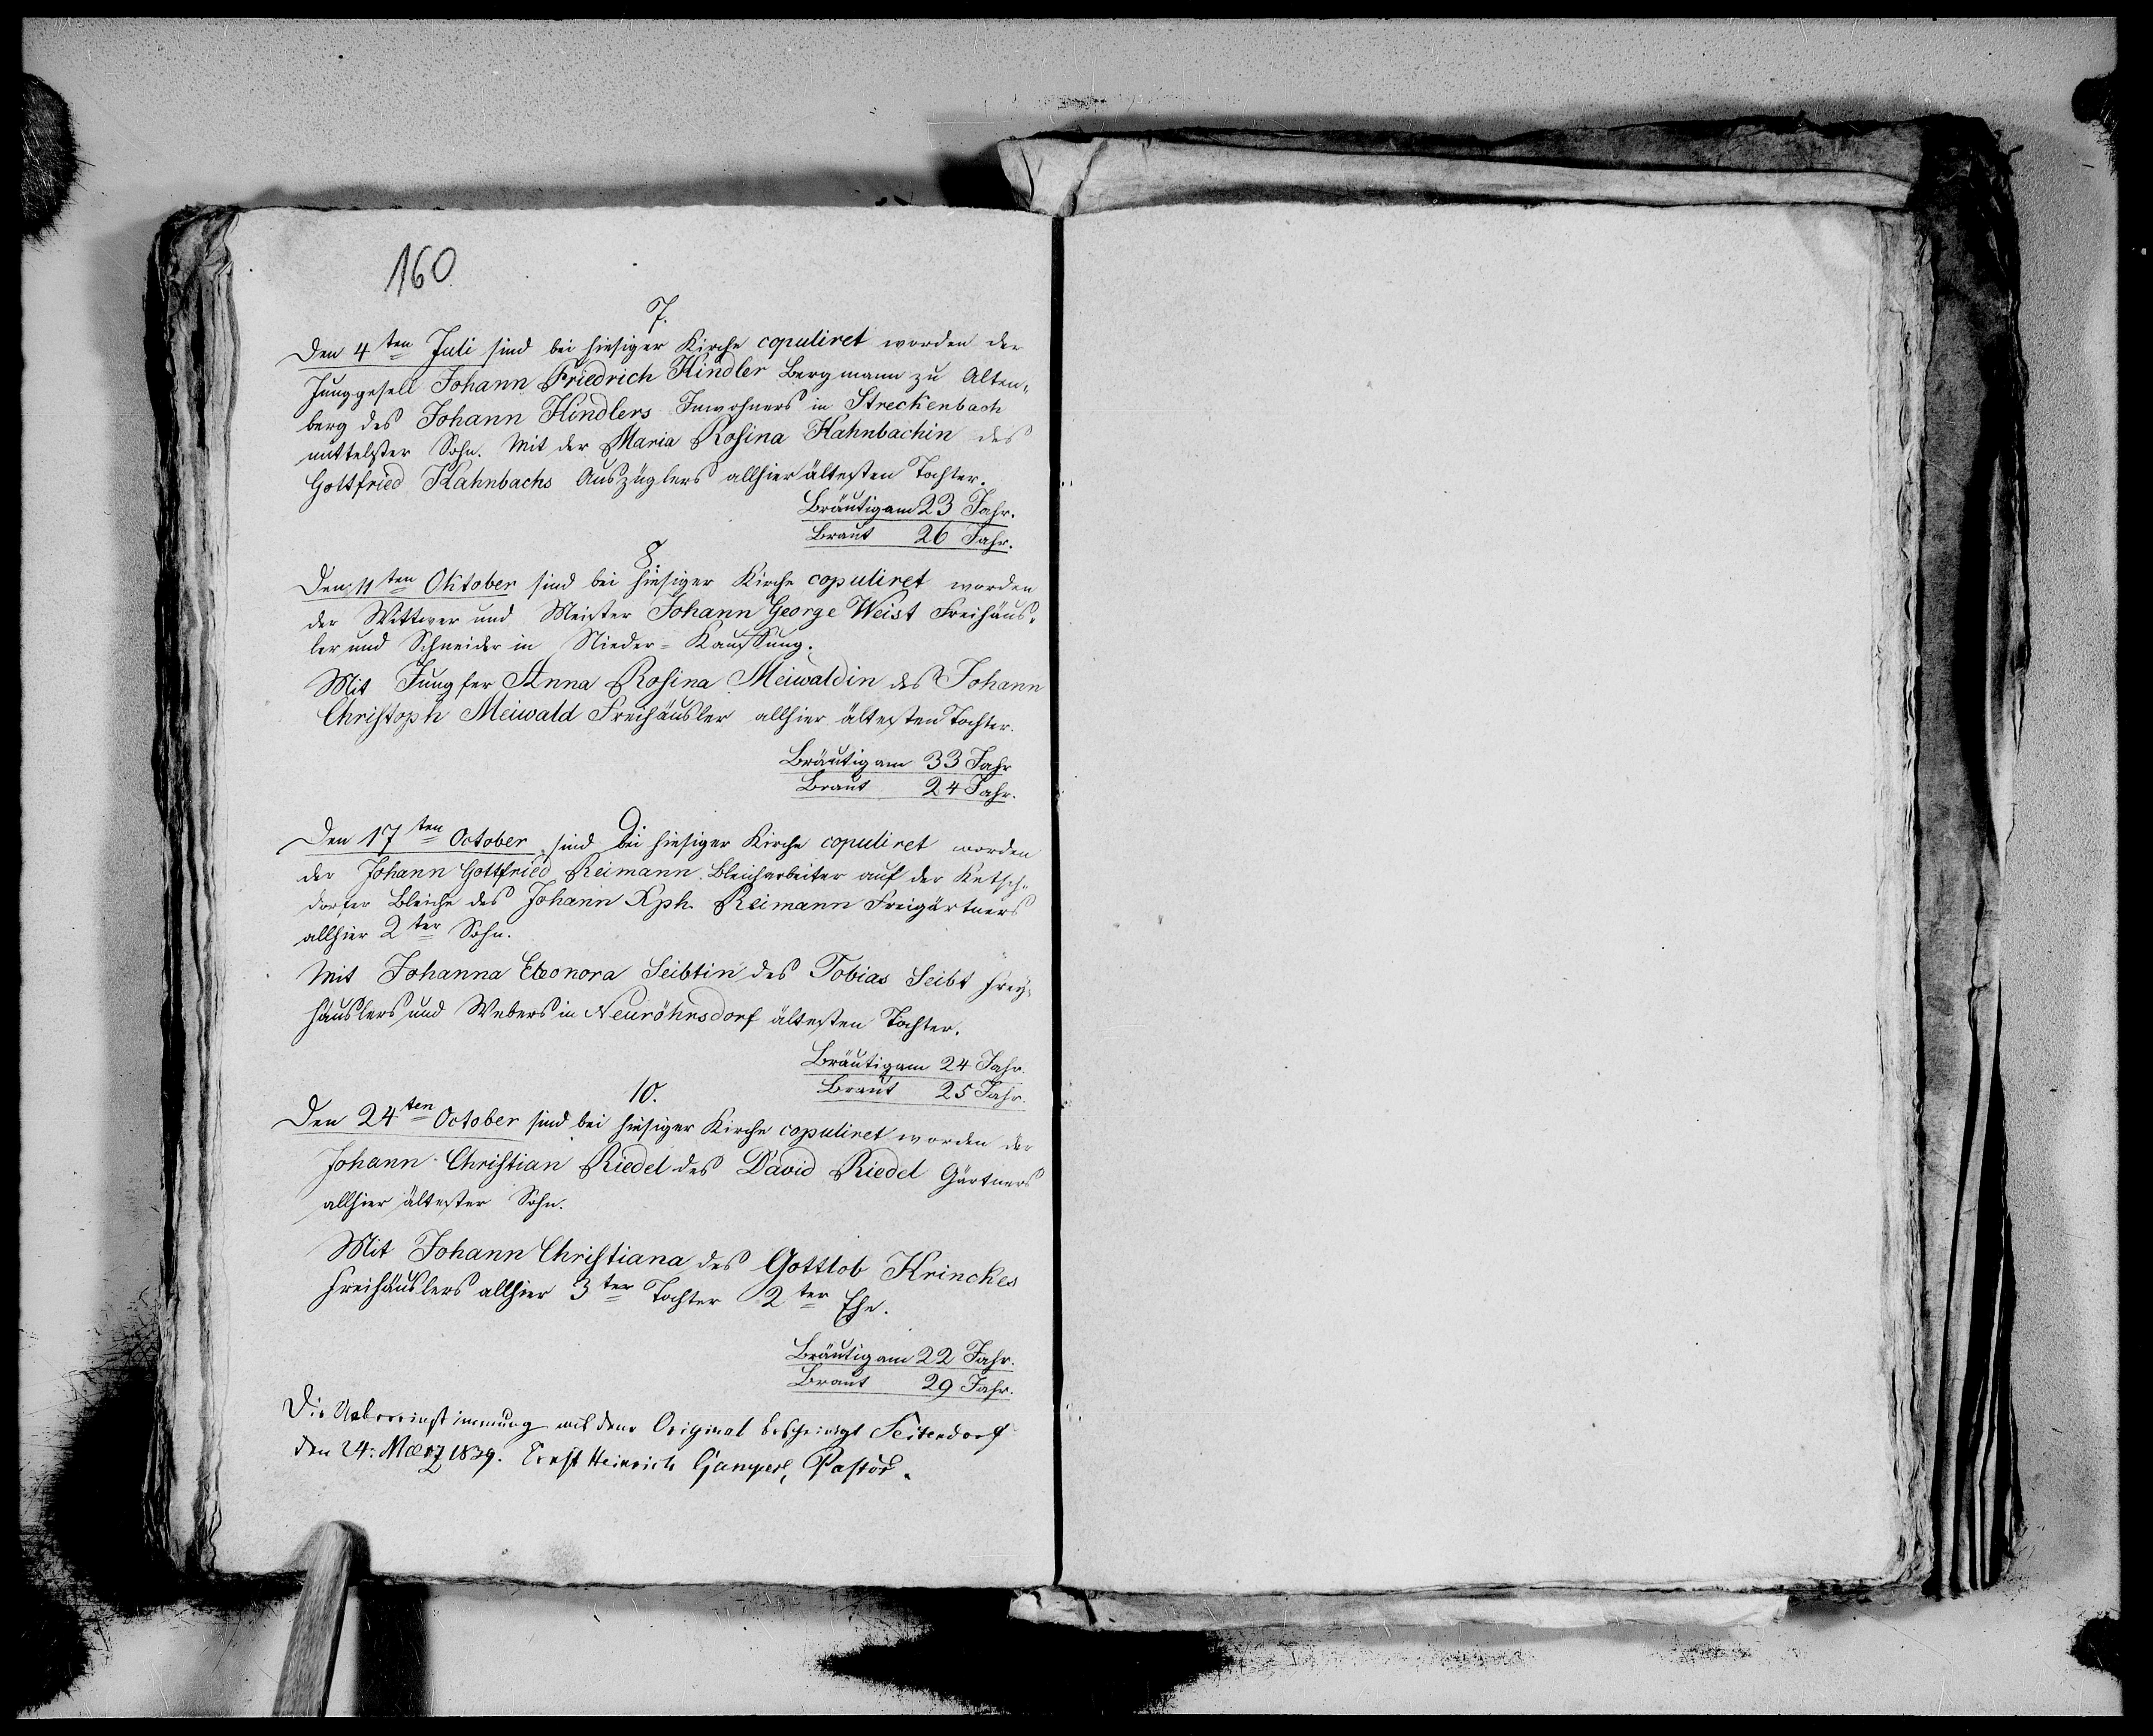 160.
7.
Den 4ten Juli sind bei hiesiger Kirche copuliret worden der
Junggesell Johann Friedrich Hindler Bergmann zu Alten-
berg des Johann Hindlers Inwohners in Streckenbach
mittelster Sohn. Mit der Maria Rosina Hahnbachin des
Gottfried Hahnbachs Auszüglers allhier ältesten Tochter.
Bräutigam 23 Jahr.
Braut 26 Jahr.
8.
Den 11ten Oktober sind bei hiesiger Kirche copuliret worden
der Wittwer und Meister Johann George Weist Freihäus-
ler und Schneider in Nieder-Kauffung.
Mit Jungfer Anna Rosina Meiwaldin des Johann
Christoph Meiwald Freihäusler allhier ältesten Tochter.
Bräutigam 33 Jahr
Braut 24 Jahr.
9.
Den 17ten October sind bei hiesiger Kirche copuliret worden
der Johann Gottfried Reimann Bleicharbeiter auf der Ketsch-
dorfer Bleiche des Johann Xph. Reimann Freigärtners
allhier 2ter Sohn.
Mit Johanna Eleonora Seibtin des Tobias Seibt Frey-
häuslers und Webers in Neuröhrsdorf ältesten Tochter.
Bräutigam 24 Jahr.
Braut 25 Jahr.
10.
Den 24ten October sind bei hiesiger Kirche copuliret worden der
Johann Christian Riedel des David Riedel Gärtners
allhier ältester Sohn.
Mit Johann Christiana des Gottlob Krinckes
Freihäuslers allhier 3ter Tochter 2ter Ehe.
Bräutigam 22 Jahr.
Braut 29 Jahr.
Die Uebereinstimmung mit dem Original bescheinigt Seitendorf
den 24. Maerz 1839. Ernst Heinrich Pastor.